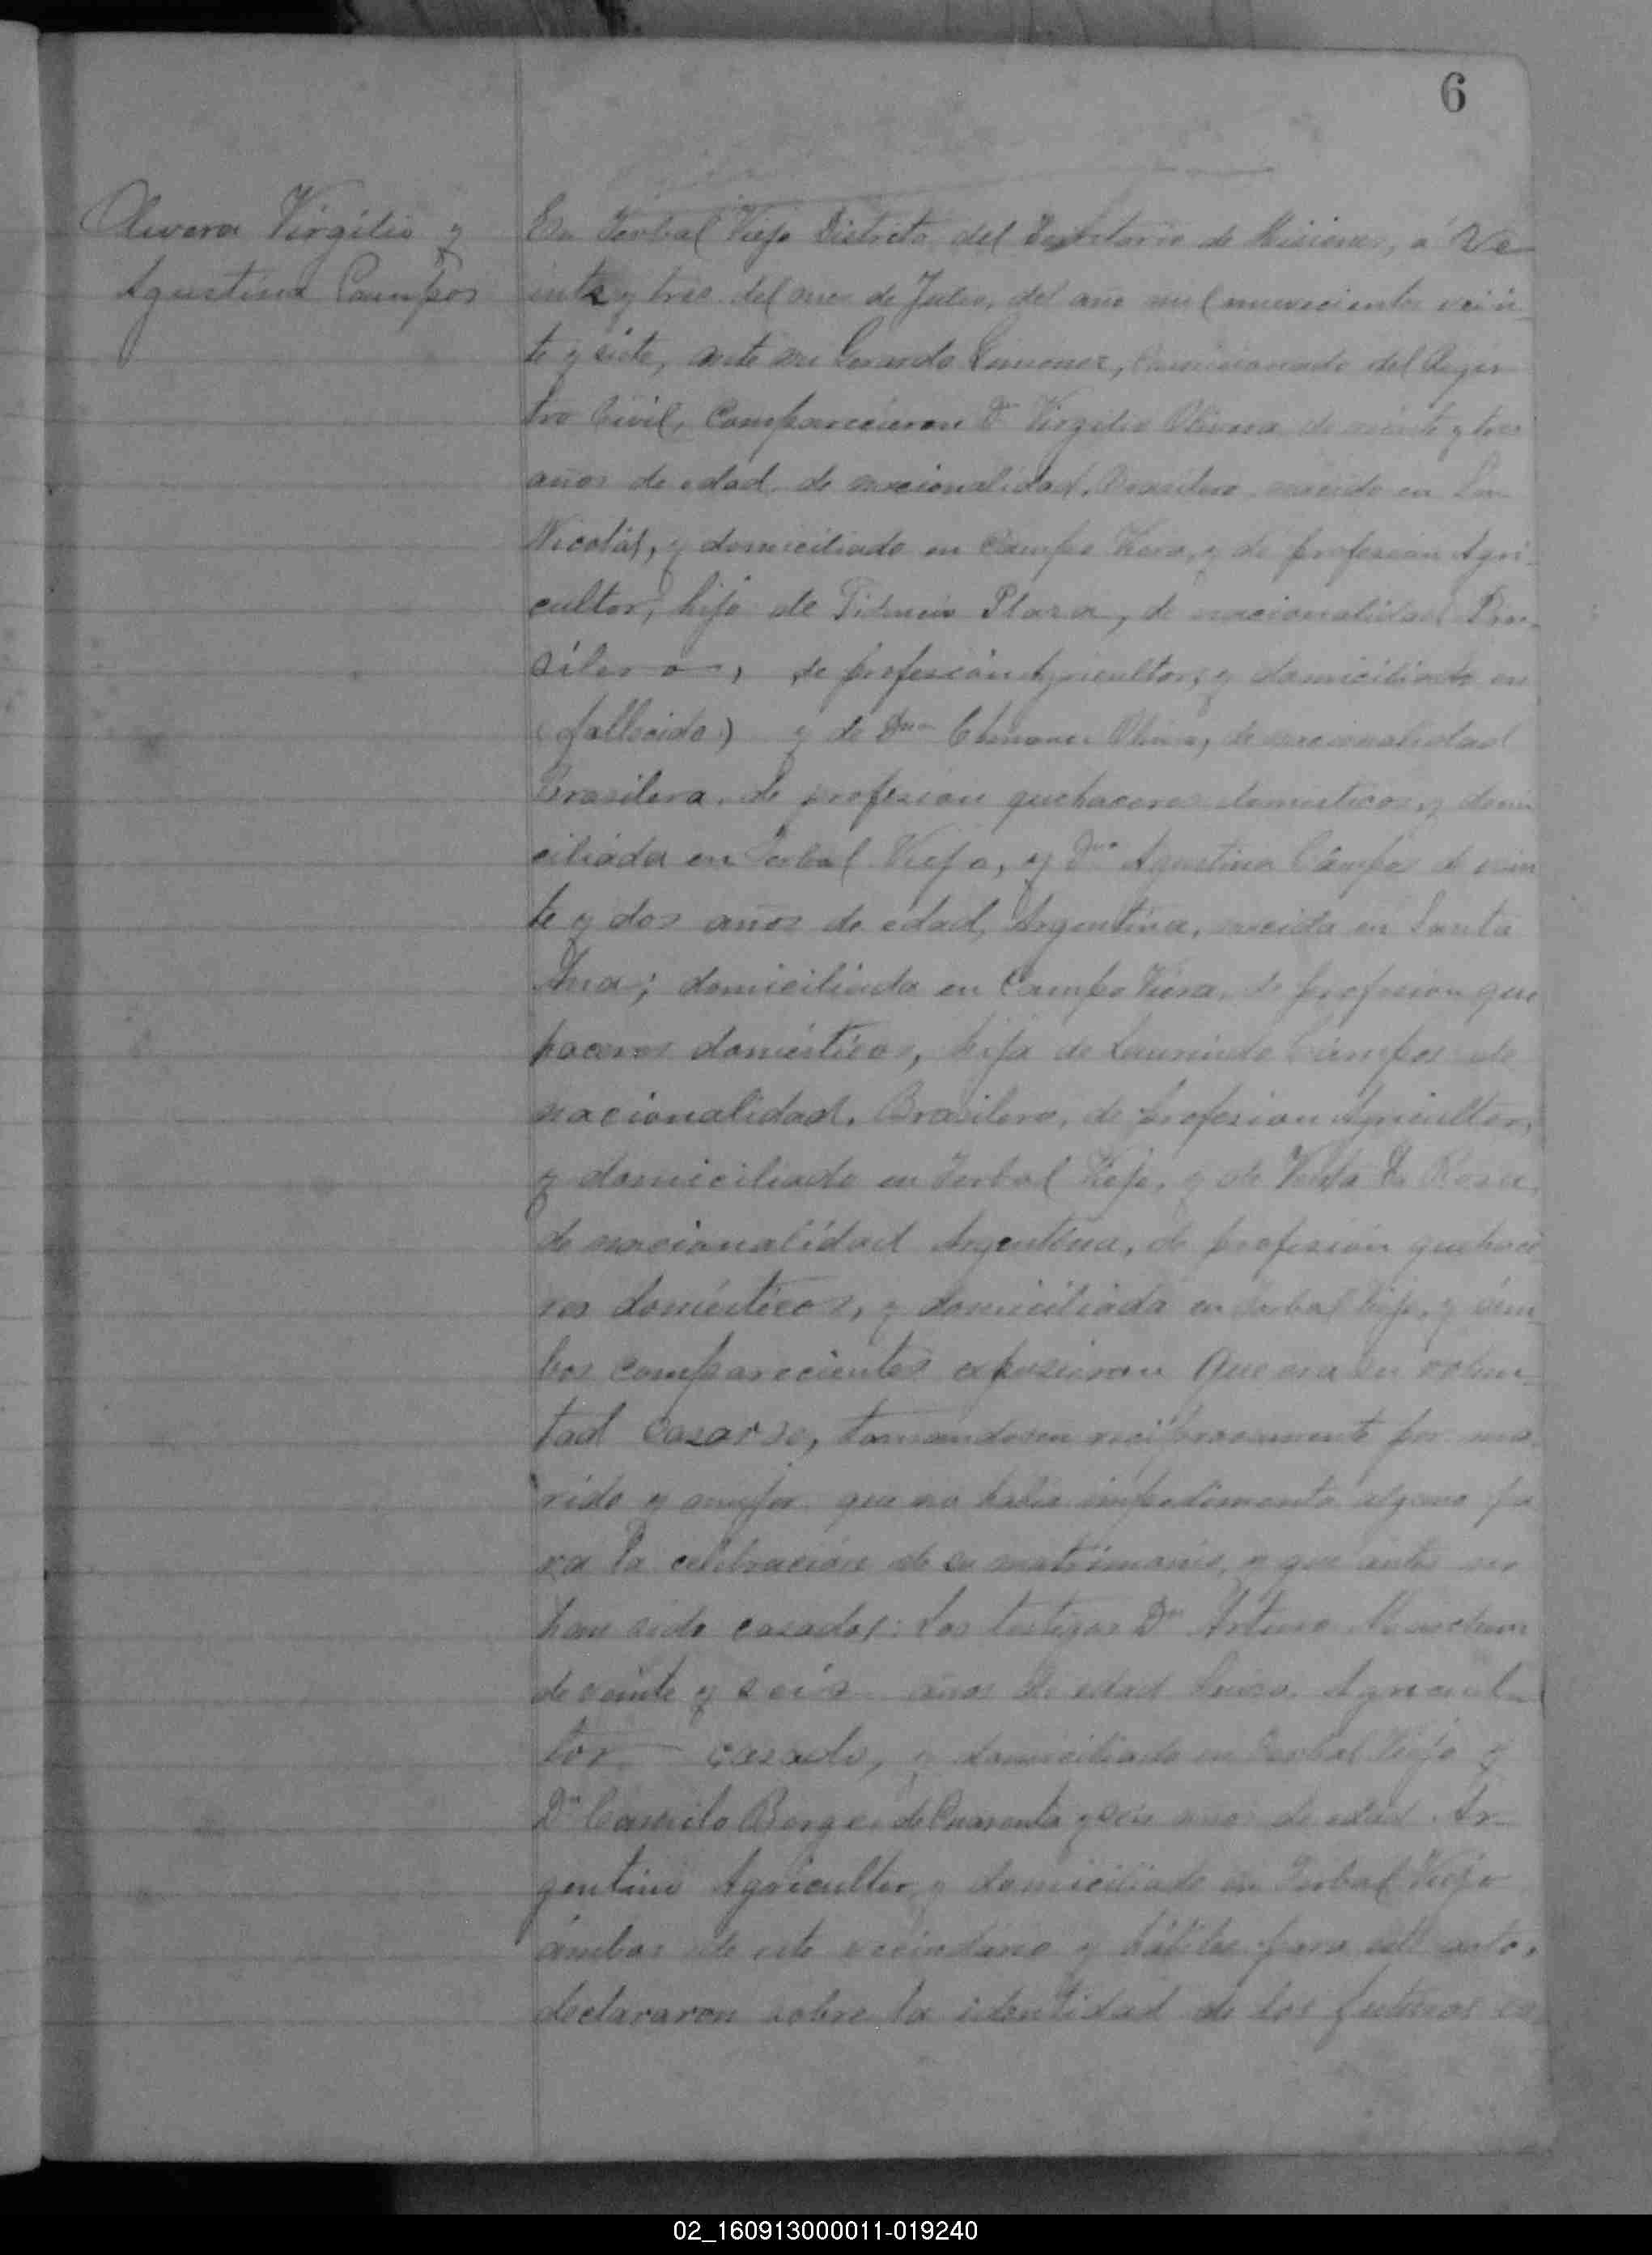 6
Olivera Virgilio y
Agustina Campos
En Yerbal Viejo Distrito del Territorio de Misiones, a Ve
inte y tres del mes de Julio, del año mil novecientos vein
te y siete, ante mi Gerardo Gimenez, Comisionado del Regis
tro Civil, Comparecieron Dn Virgilio Olivera de veinte y tres
años de edad de nacionalidad, Brasilero, nacido en San
Nicolás, y domiciliado en Campo Viera, y de profesion Agri
cultor, hijo de Plaza, de nacionalidad Bra
silero, de profesión Agricultor, y domiciliado en
(fallecido) y de Dña Olivera, de nacionalidad
Brasilera, de profesion quehaceres domesticos, y domi
ciliada en Yerbal Viejo, y Dña Agustina Campos de vein
te y dos años de edad, Argentina, nacida en Santa
Ana; domiciliada en Campo Viera, de profesion que
haceres domésticos, hija de Laurindo Campos de
nacionalidad, Brasilero, de profesion Agricultor,
y domiciliado en Yerbal Viejo, y de Rosa,
de nacionalidad Argentina, de profesión quehace
res domésticos, y domiciliada en Yerbal Viejo, y ám
bos comparecientes expusieron Que era su volun
tad casarse, tomandosen reciprocamente por ma
rido y mujer que no habia impedimento alguno pa
ra la celebración de su matrimonio, y que antes no
han sido casados: Los testigos Dn Arturo
de veinte y seis años de edad Suizo, Agricul
tor casado, y domiciliado en Yerbal Viejo y
Dn Camilo Borges de Cuarenta y seis años de edad Ar
gentino Agricultor, y domiciliado en Yerbal Viejo
ámbos de este vecindario y hábiles para este acto,
declararon sobre la identidad de los futuros es
02_160913000011-019240